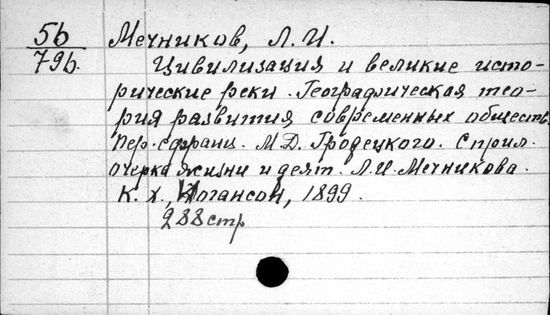 56 Мечников, Л. И.
79б. Цивилизация и великие исто-
рические реки. Географическая тео-
рия развития современных обществ.
Пер. с франц. М. Д. Гродецкого. С прил.
очерка жизни и деят. Л. И. Мечникова.
К. Х., Иогансон, 1899.
288 стр